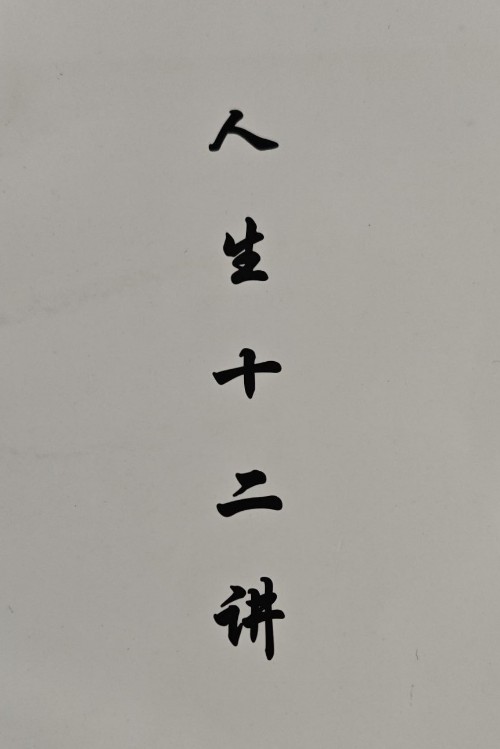 人生十二讲